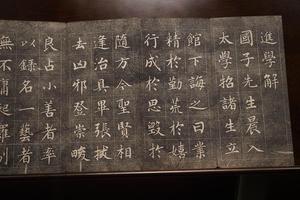 進學解
國子先生晨入
太學招諸生立
館下誨之曰業
精於勤荒於嬉
行成於思毀於
隨方今聖賢相
逢治具畢張拔
去凶邪登崇畯
良占小善者率
以録名一藝者
無不庸爬羅剔